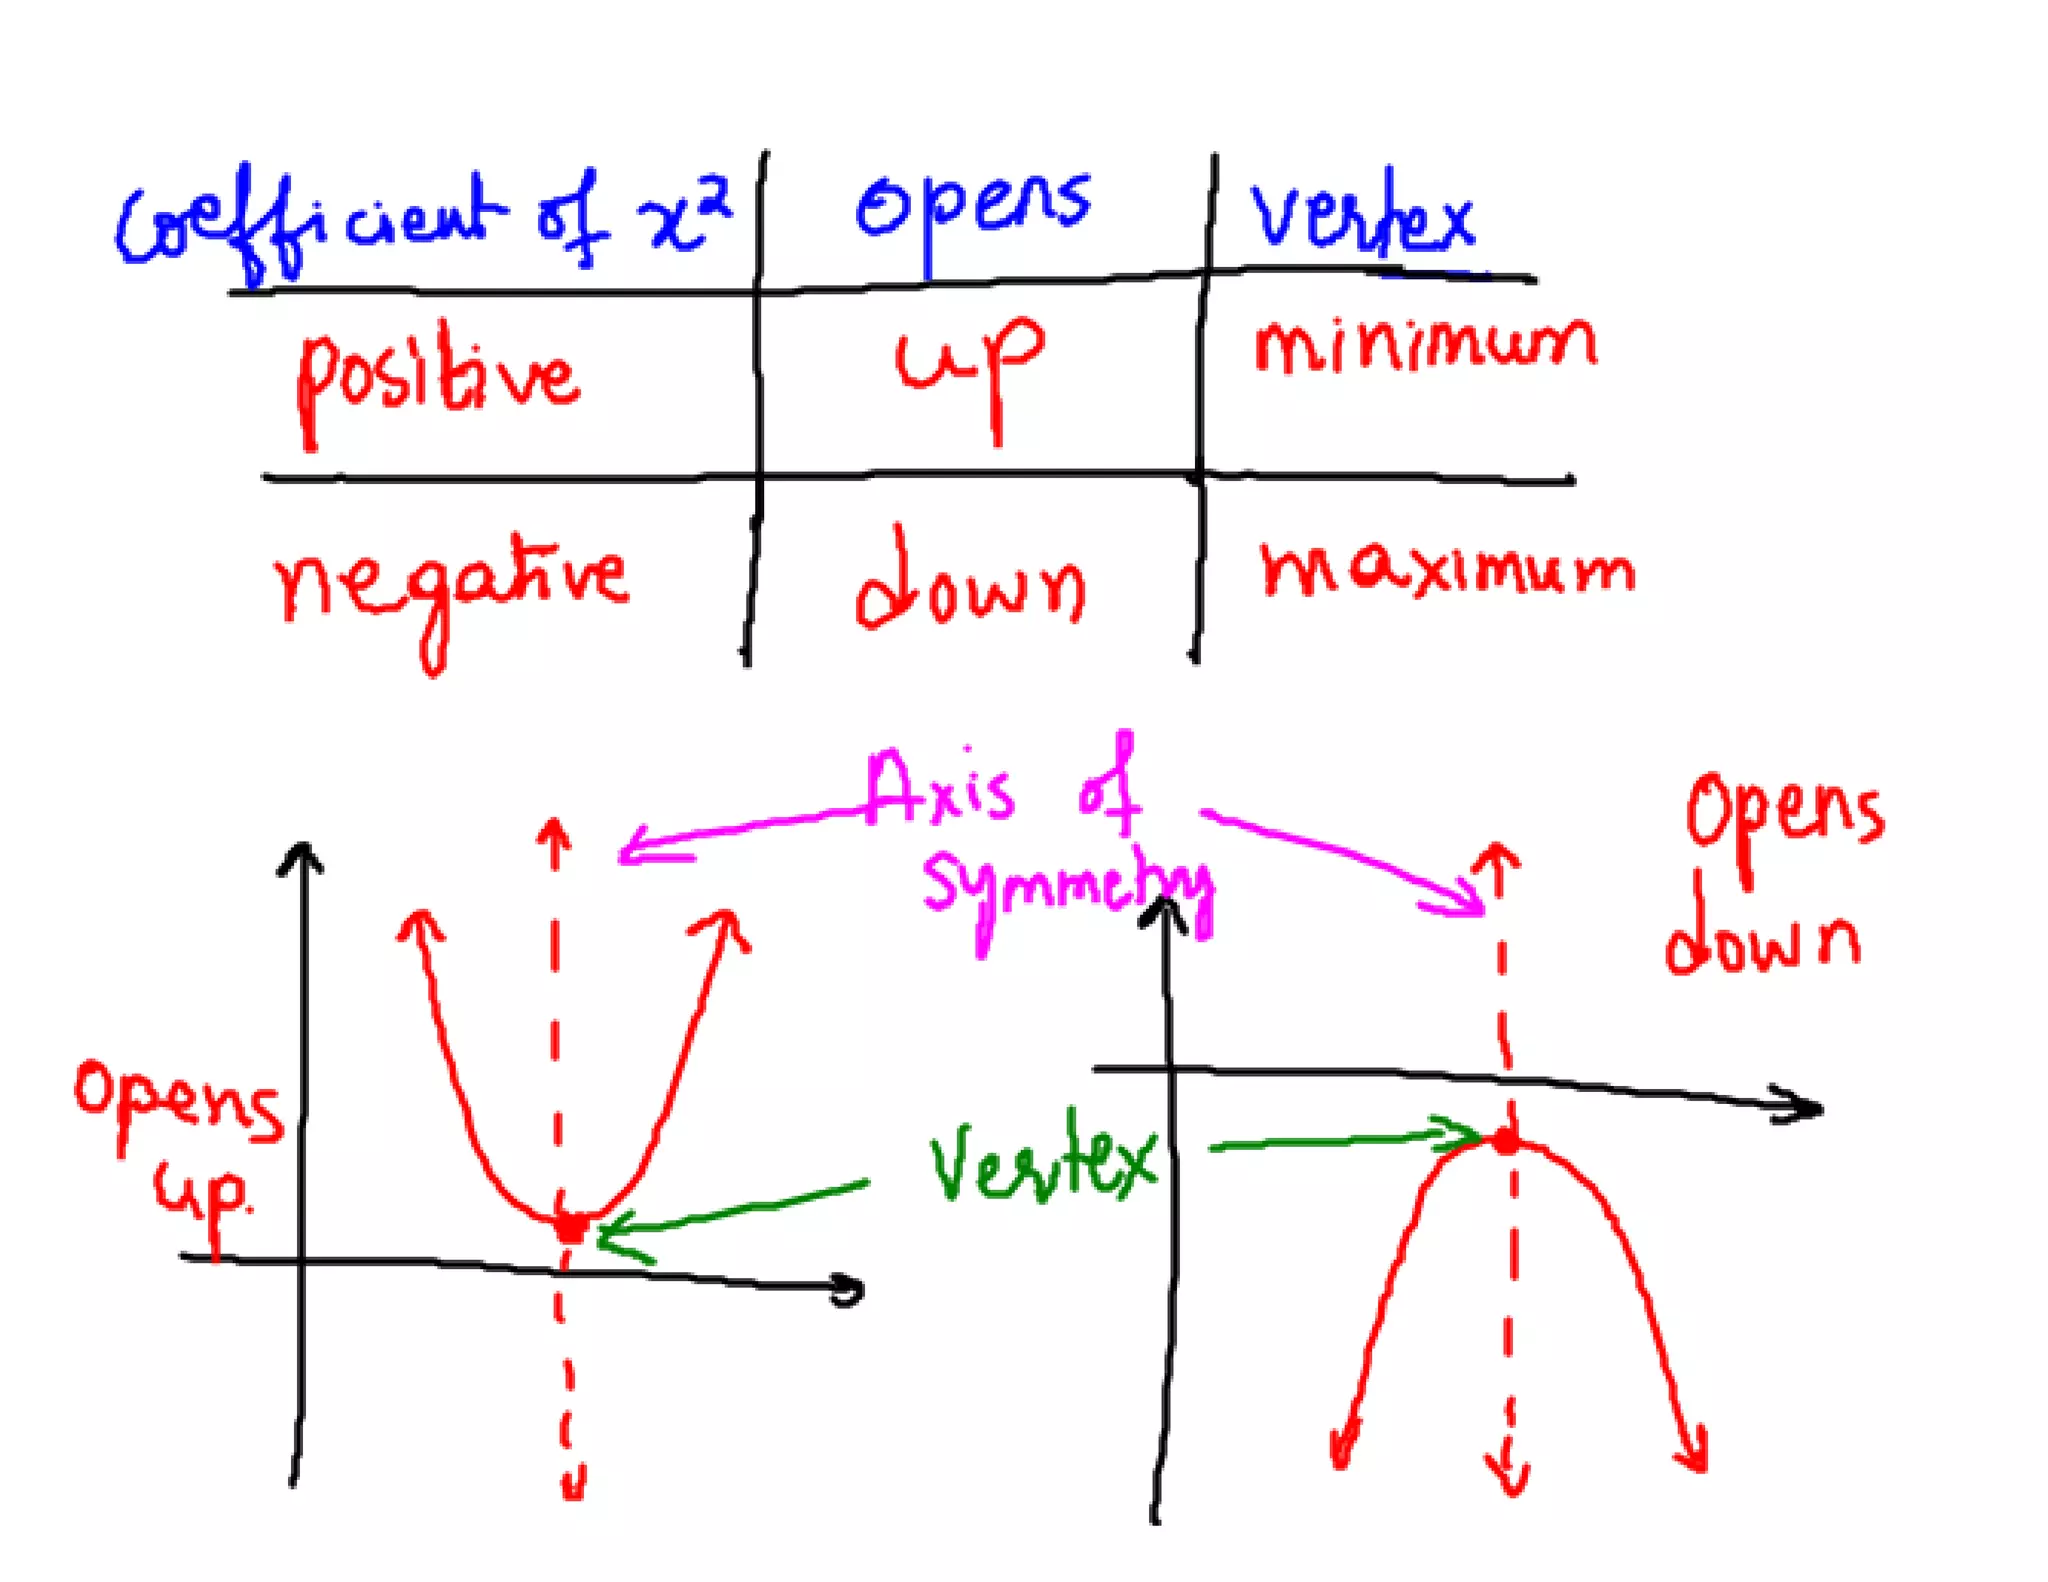 Coefficient of x² opens vertex
positive up minimum
negative down maximum
Axis of
symmetry
Opens
down
Opens
up.
Vertex